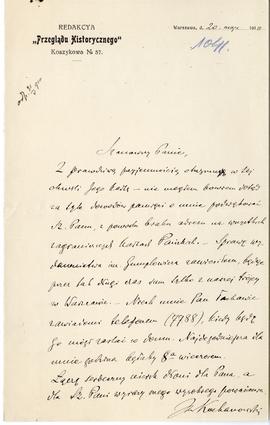 REDAKCYA
„Przeglądu Historycznego”
Koszykowa № 57.
Warszawa, d. 20 maja 191
Szanowny Panie,
Z prawdziwą przyjemnością otrzymuję w tej
chwili Jego kartę – nie mogłem bowem dotąd
za tyle dowodów pamięci o mnie podziękować
Sz. Panu, z powodu braku adresu na wszystkich
zagranicznych kartach Pańskich. – Sprawę wy-
dawnictwa im. Gumplowicza zawiesiłem, będąc
przez tak długi czas sam tylko z naszej trójcy
w Warszawie. – Niech mnie Pan łaskawie
zawiadomi telefonem (7988), kiedy będę
Go mógł zastać w domu. Najdogodniejsza dla
mnie godzina byłaby 8ª wieczorem.
Łączę serdeczny uścisk dłoni dla Pana, a
dla Sz. Pani wyrazy mego wysokiego poważania
J. Kochanowski